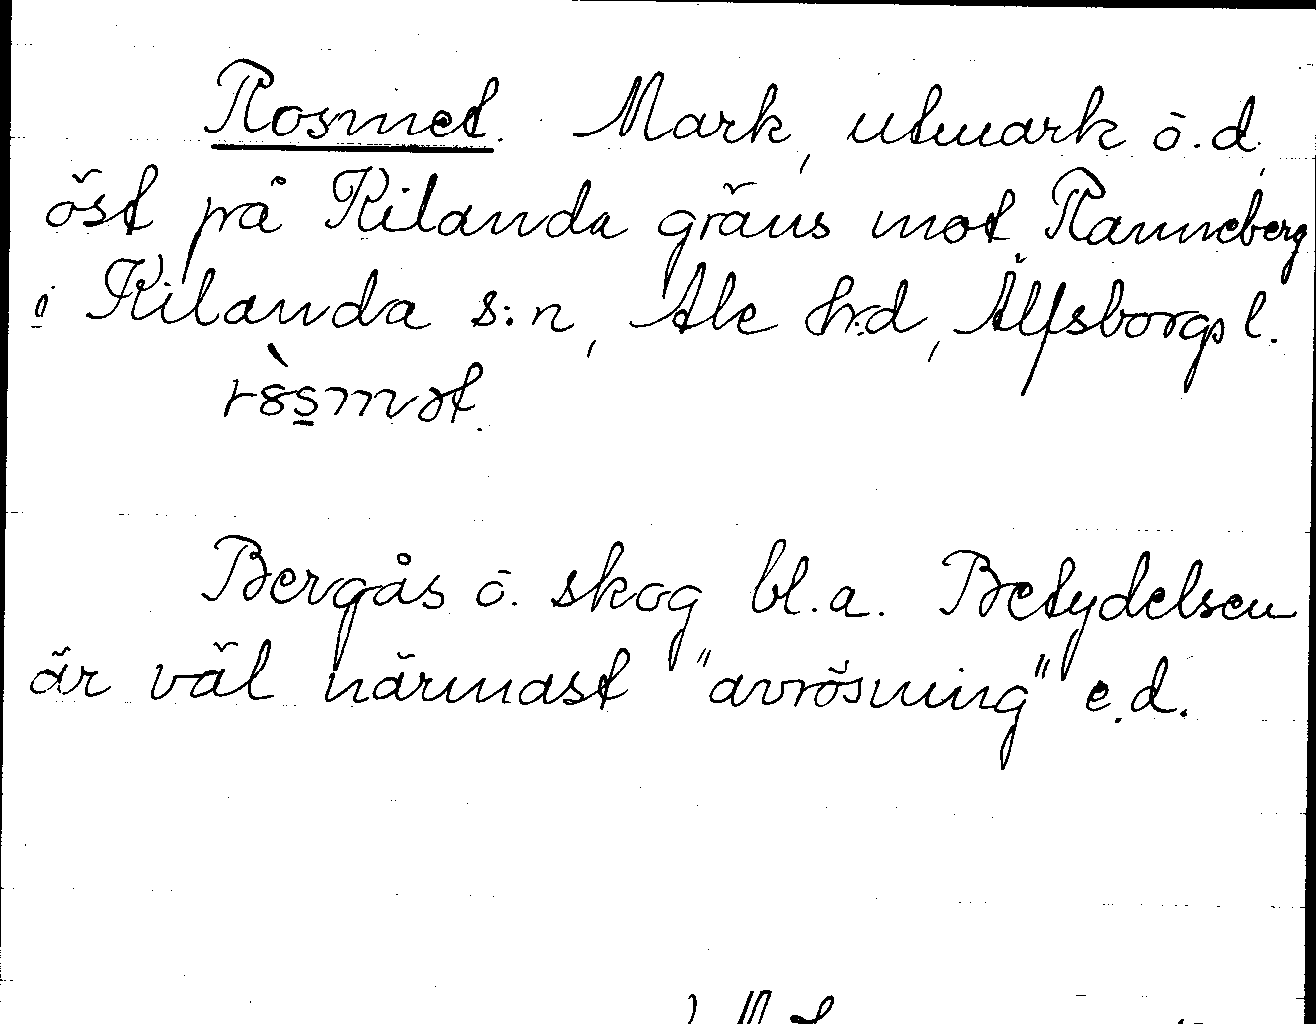 Rosmet. Mark, utmark o.d.
öst på Kilanda gräns mot Ranneberg
i Kilanda s:n, Ale h:d, Älfsborgs l.
Bergås o. skog bl.a. Betydelsen
är väl närmast "avrösning" e.d.